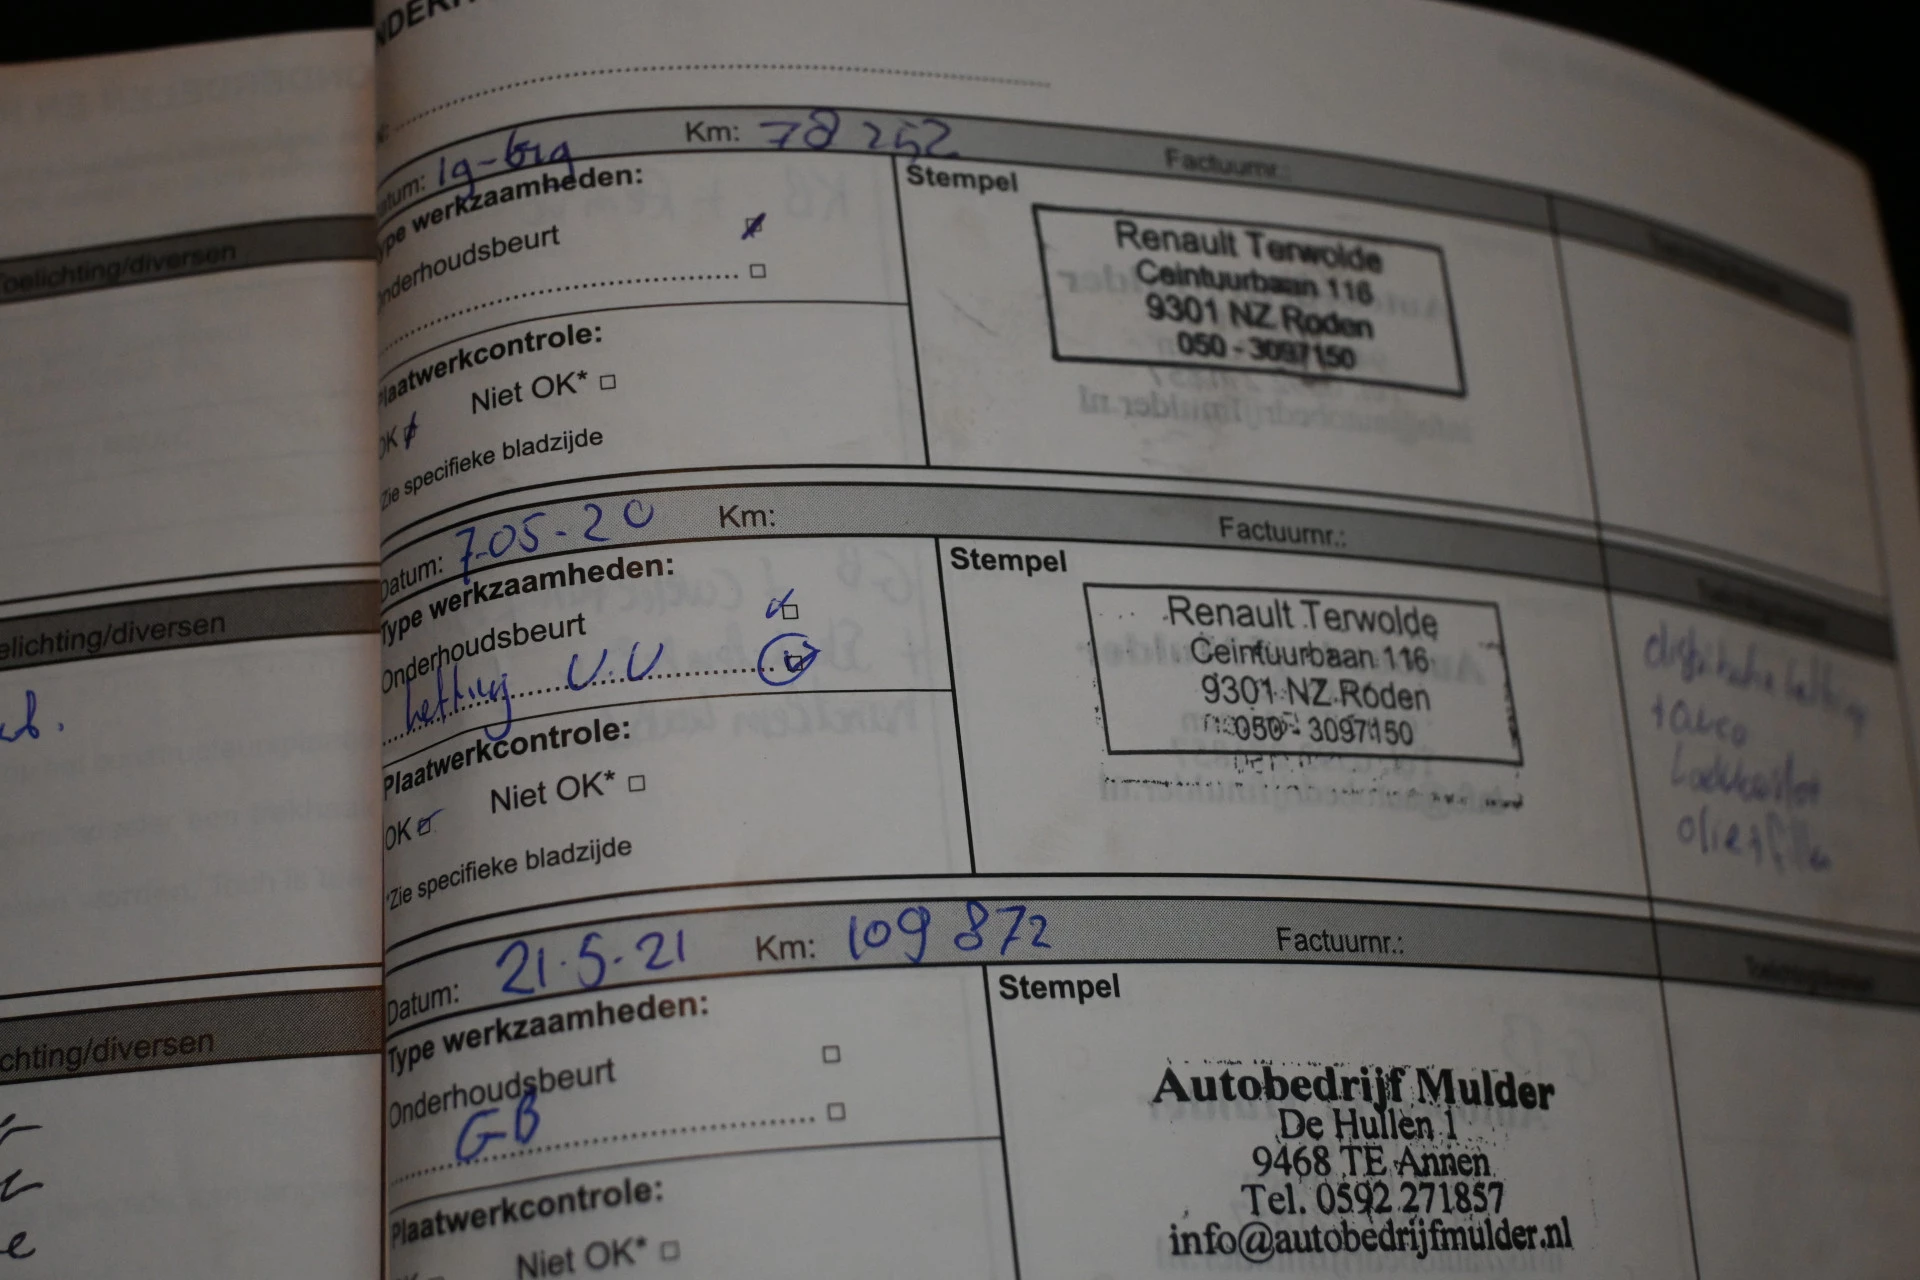 Km: 78 252
Factuurnr.:
Type werkzaamheden:
Stempel
Onderhoudsbeurt
Renault Terwolde
Ceintuurbaan 116
9301 NZ Roden
050 - 3097150
Plaatwerkcontrole:
Niet OK*
OK
*Zie specifieke bladzijde
Toelichting/diversen
Datum: 7-05-20 Km:
Factuurnr.:
Type werkzaamheden:
Stempel
Onderhoudsbeurt
ketting V.V
Renault Terwolde
Ceintuurbaan 116
9301 NZ Roden
050 - 3097150
Plaatwerkcontrole:
Niet OK*
OK
*Zie specifieke bladzijde
elichting/diversen
Datum: 21-5-21 Km: 109 872
Factuurnr.:
Type werkzaamheden:
Stempel
Onderhoudsbeurt
GB
Autobedrijf Mulder
De Hullen 1
9468 TE Annen
Tel. 0592 271857
info@autobedrijfmulder.nl
Plaatwerkcontrole:
Niet OK*
chting/diversen